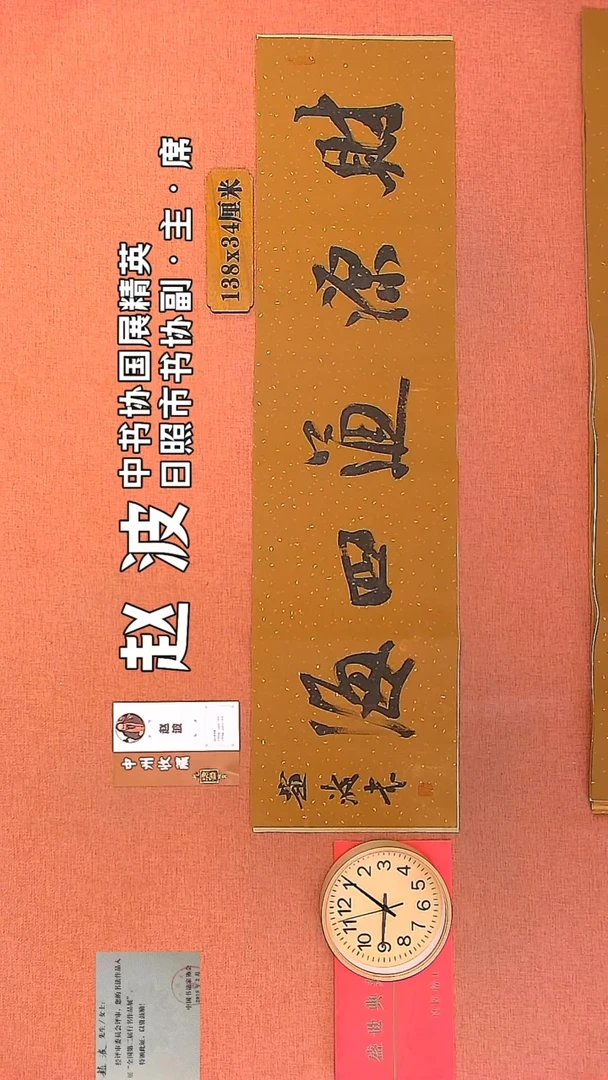 赵波
中书协国展精英
日照市书协副·主·席
138x34厘米
財源通四海
赵波书
赵波
中州收藏
12
1
2
3
4
5
6
7
8
9
10
11
先生/女士:
经评审委员会评审,您的书法作品入
展“全国第二届行书作品展”,
特颁此证,以资鼓励!
中国书法家协会
盛世典